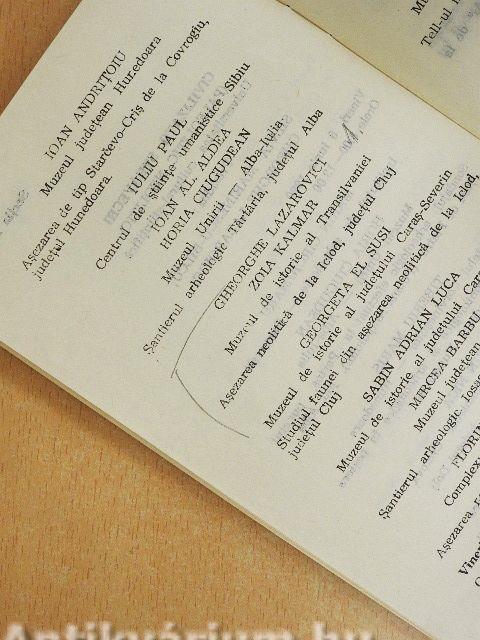 IOAN ANDRIȚOIU
Muzeul județean Hunedoara
Așezarea de tip Starčevo-Criș de la Covrogiu,
județul Hunedoara.
IULIU PAUL
Centrul de științe umanistice Sibiu
IOAN AL. ALDEA
HORIA CIUGUDEAN
Muzeul Unirii Alba-Iulia
Șantierul arheologic Tărtăria județul Alba
GHEORGHE LAZAROVICI
ZOLA KALMAR
Muzeul de istorie al Transilvaniei
Așezarea neolitică de la Iclod, județul Cluj
GEORGETA EL SUSI
Muzeul de istorie al județului Caraș-Severin
Studiul faunei din așezarea neolitică de la Iclod,
județul Cluj
SABIN ADRIAN LUCA
Muzeul de istorie al județului
MIRCEA BARBU
Muzeul județean
Șantierul arheologic
FLORIN
Complex
Așezarea
Tell-ul
Antikvárium.hu